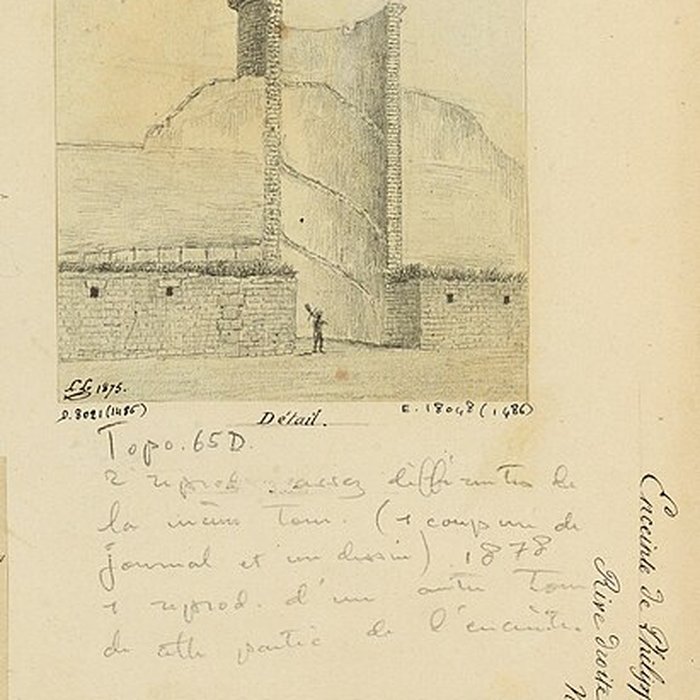 L.L. 1875.
D. 8021 (1486)
Détail.
E. 18048 (1486)
Topo. 65D.
2 reprod. assez différentes de
la même Tour. (1 coupure de
journal et un dessin) 1878
1 reprod. d'un autre Tour
de cette partie de l'enceinte.
Enceinte de Philipp
Rive droite